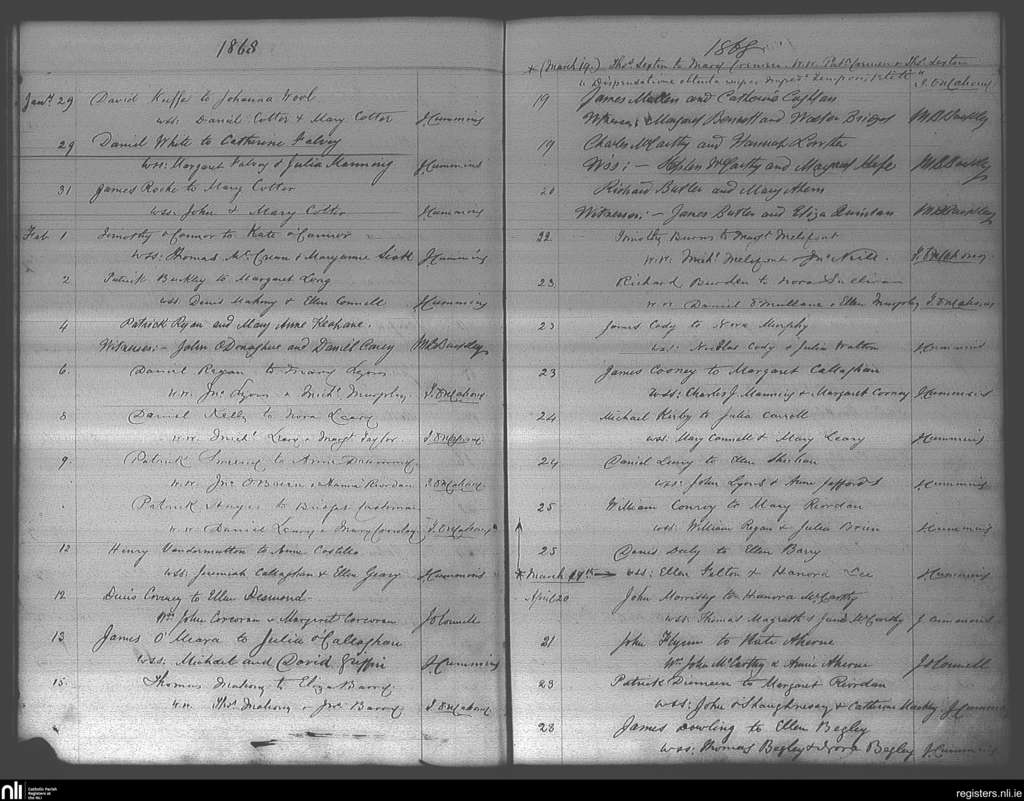 1868
Jany. 29 David Keeffe to Johanna Wool
wss: Daniel Cotter & Mary Cotter J Cummins
29 Daniel White to Catherine Falvey
wss: Margaret Falvey & Julia Manning J Cummins
31 James Roche to Mary Cotter
wss: John & Mary Cotter J Cummins
Feb 1 Timothy O'Connor to Kate O'Connor
wss: Thomas McCrean & Maryanne Scott J Cummins
2 Patrick Buckley to Margaret Long
wss. Denis Mahony & Ellen Connell J Cummins
4 Patrick Ryan and Mary Anne
Witnesses:- John O'Donoghue and Daniel Carey
6. Daniel Regan to Mary Lyons
w.w. Jno. Lyons & Michl. Murphy J. O'Mahony
8 Daniel Kelly to Nora Leary
w.w. Michl. Leary & Margt. Taylor J. O'Mahony
9. Patrick to Anne
w.w. Jno. O'Brien & Hanna Riordan J. O'Mahony
Patrick to Bridget
w.w. Daniel Leary & Mary J. O'Mahony
12 Henry Vandermutton to Anne Costello
wss: Jeremiah Callaghan & Ellen Geary J Cummins
12. Denis Conroy to Ellen Desmond
Wss John Corcoran & Margaret Corcoran J O'Connell
13 James O'Meara to Julia O'Callaghan
wss: Michael and David Griffin J. Cummins
15. Thomas Mahony to Eliza Barry
w.w. Thos. Mahony & Jno. Barry J. O'Mahony
1868
* (March 19.) Thos. Sexton to Mary w.w. Patk. & Thos. Sexton
"Dispensatione obtenta super J. O'Mahony
19 James Mullen and Catherine
Witnesses: Margaret Bennett and Walter Bridges
19 Charles McCarthy and Hannah
Wss:- Stephen McCarthy and Margaret
20 Richard Butler and Mary Ahern
Witnesses:- James Butler and Eliza Quinlan
22. Timothy Burns to Margt. Melefont
w.w. Michl. Melefont & Jno. J. O'Mahony
23. Richard to Nora Sullivan
w.w. Daniel O'Mullane & Ellen Murphy J. O'Mahony
23 James Cody to Nora Murphy
wss: Nicholas Cody & Julia Walton J Cummins
23 James Cooney to Margaret Callaghan
Wss: Charles J. Manning & Margaret Cooney J Cummins
24 Michael Kirby to Julia Carroll
wss: Mary Connell & Mary Leary J Cummins
24 Daniel Leary to Ellen Sheehan
wss: John Lyons & Anne J. Cummins
25 William Conroy to Mary Riordan
wss: William Regan & Julia Brien J Cummins
25 Denis Daly to Ellen Barry
* March 19th wss: Ellen Felton & Hanora Lee J Cummins
April 20 John Morrissy to Hanora McCarthy
wss: Thomas Magrath & Jane McCarthy J Cummins
21 John Flynn to Kate Aherne
Wss John McCarthy & Annie Aherne J O'Connell
23 Patrick to Margaret Riordan
wss: John O'Shaughnessy & Catherine J. Cummins
23 James Dowling to Ellen Begley
wss: Thomas Begley & Nora Begley J. Cummins
nli Catholic Parish
Registers at
the NLI
registers.nli.ie